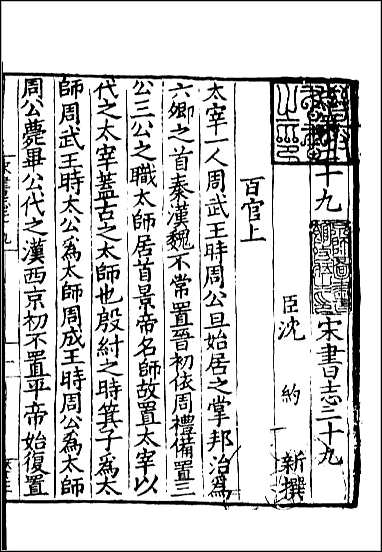 志第二十九　宋書三十九
臣沈　約　新撰
百官上
太宰一人周武王時周公旦始居之掌邦治爲
六卿之首秦漢魏不常置晉初依周禮備置三
公三公之職太師居首景帝名師故置太宰以
代之太宰蓋古之太師也殷紂之時箕子爲太
師周武王時太公爲太師周成王時周公爲太師
周公薨畢公代之漢西京初不置平帝始復置